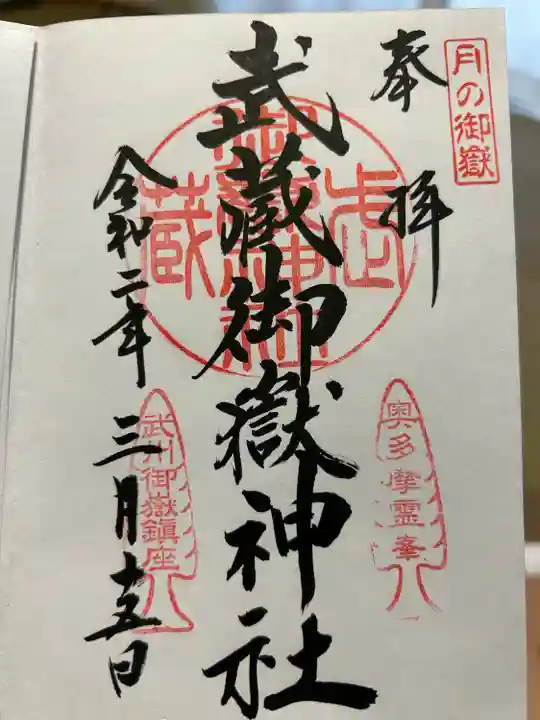 月の御嶽
奉拝
奥多摩霊峯
武蔵御嶽神社
武蔵御嶽神社
令和二年三月十五日
武州御嶽鎮座